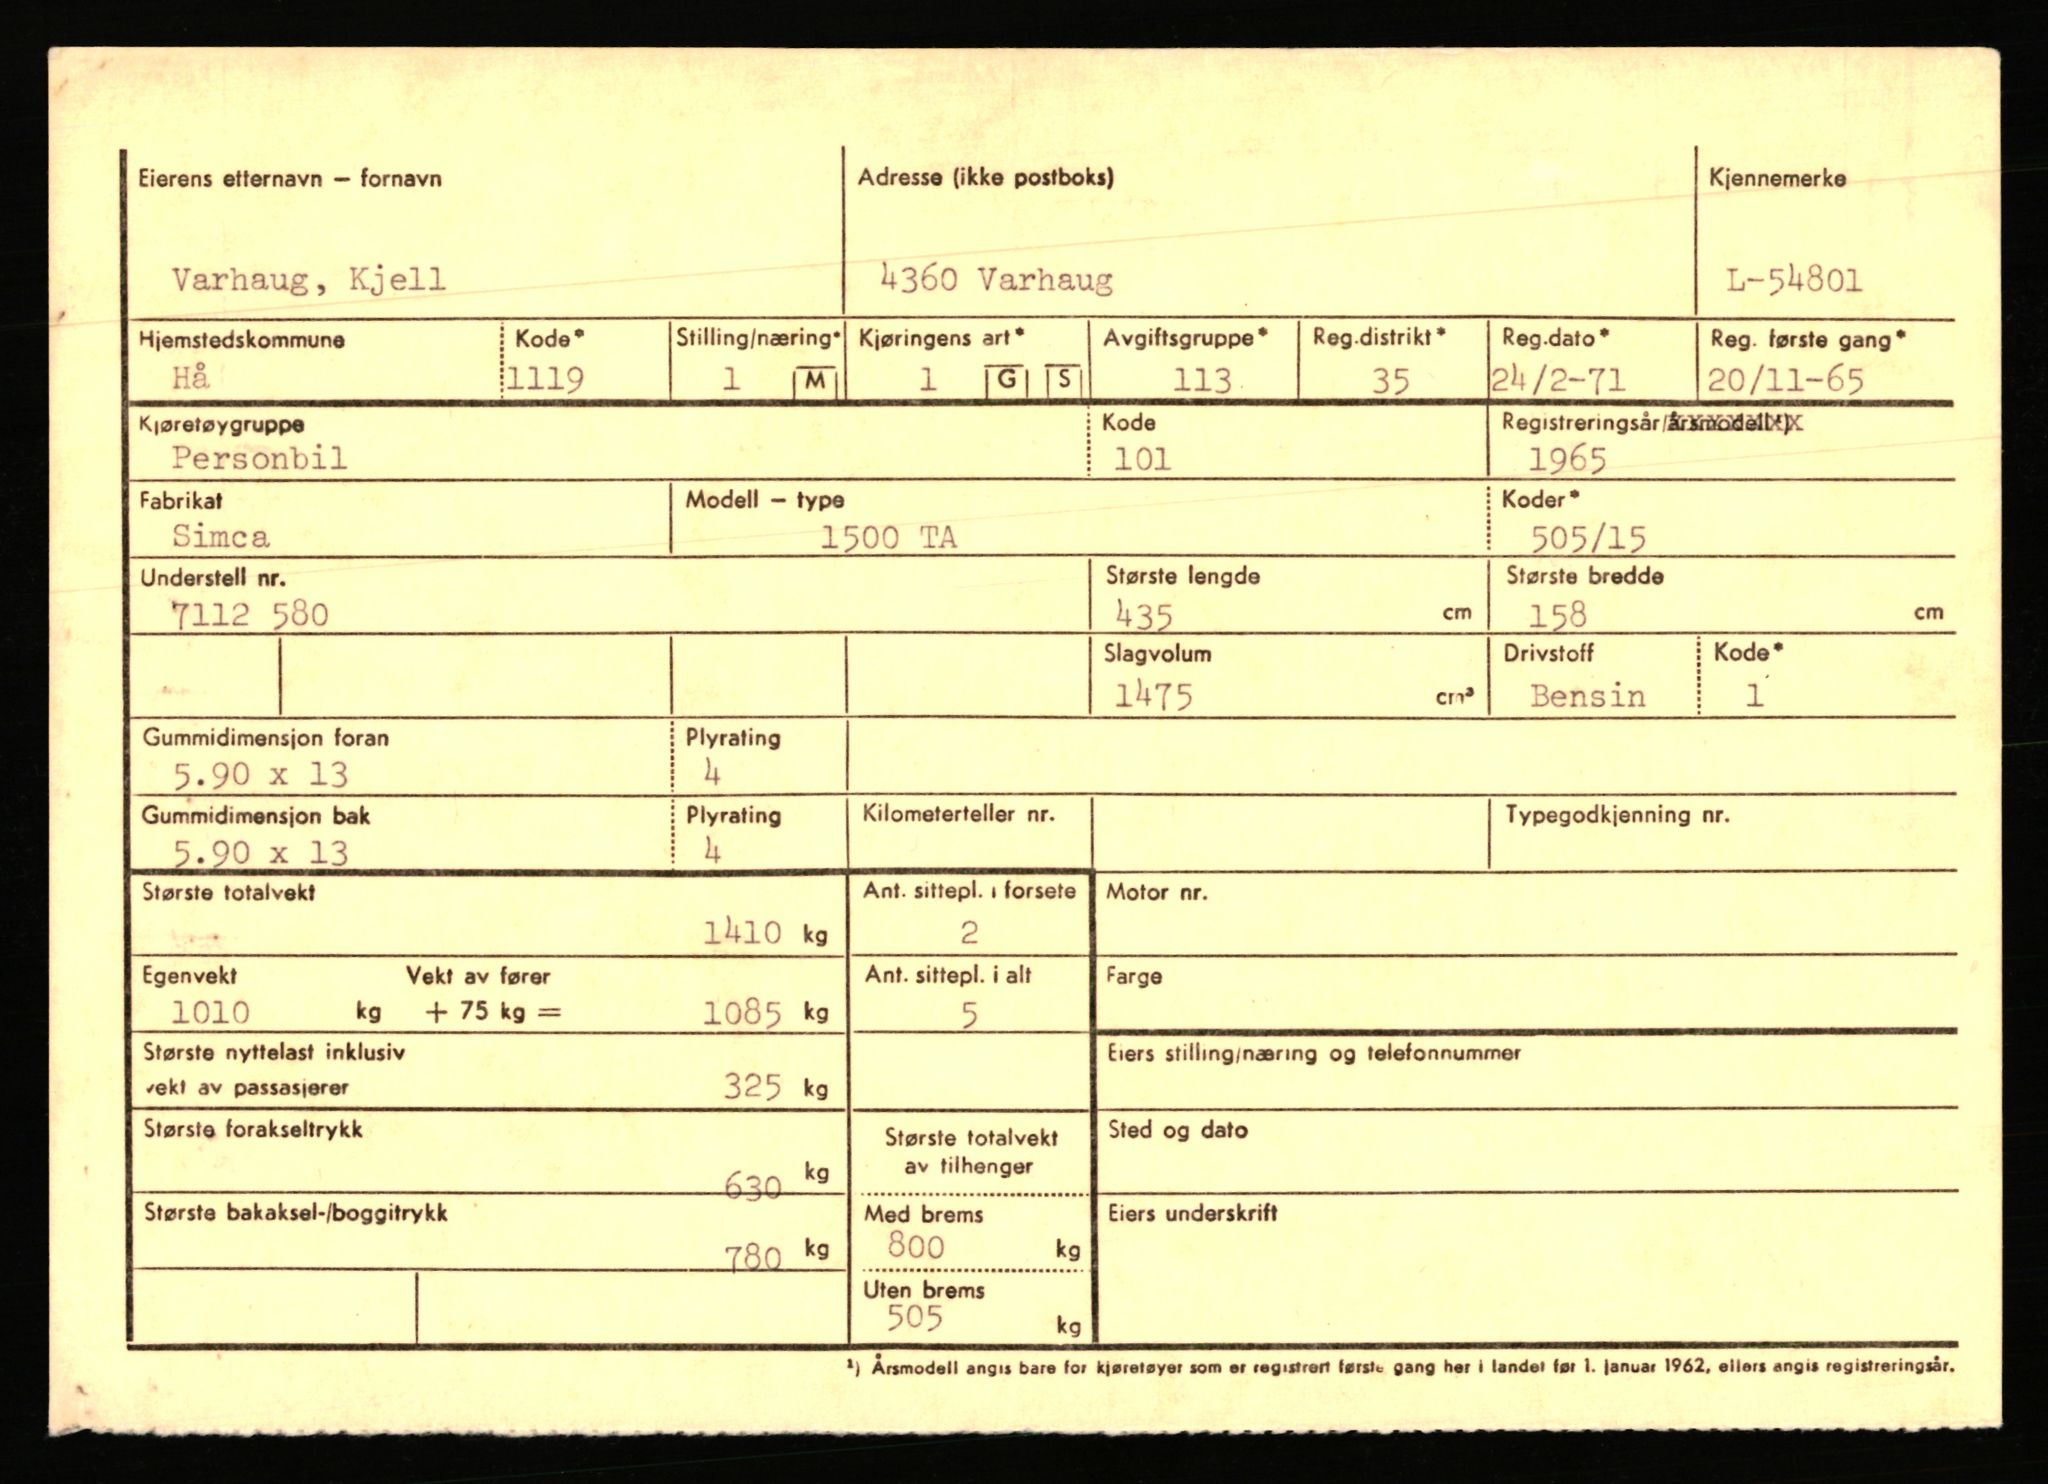 Eierens etternavn – fornavn Adresse (ikke postboks) Kjennemerke
Varhaug, Kjell 4360 Varhaug L-54801
Hjemstedskommune Kode* Stilling/næring* Kjøringens art* Avgiftsgruppe* Reg.distrikt* Reg.dato* Reg. første gang*
Hå 1119 1 M 1 G S 113 35 24/2-71 20/11-65
Kjøretøygruppe Kode Registreringsår/årsmodell¹)
Personbil 101 1965
Fabrikat Modell – type Koder*
Simca 1500 TA 505/15
Understell nr. Største lengde Største bredde
7112 580 435 cm 158 cm
Slagvolum Drivstoff Kode*
1475 cm³ Bensin 1
Gummidimensjon foran Plyrating
5.90 x 13 4
Gummidimensjon bak Plyrating Kilometerteller nr. Typegodkjenning nr.
5.90 x 13 4
Største totalvekt Ant. sittepl. i forsete Motor nr.
1410 kg 2
Egenvekt Vekt av fører Ant. sittepl. i alt Farge
1010 kg + 75 kg = 1085 kg 5
Største nyttelast inklusiv Eiers stilling/næring og telefonnummer
vekt av passasjerer 325 kg
Største forakseltrykk Største totalvekt Sted og dato
av tilhenger
630 kg
Største bakaksel-/boggitrykk Med brems Eiers underskrift
780 kg 800 kg
Uten brems
505 kg
¹) Årsmodell angis bare for kjøretøyer som er registrert første gang her i landet før 1. januar 1962, ellers angis registreringsår.